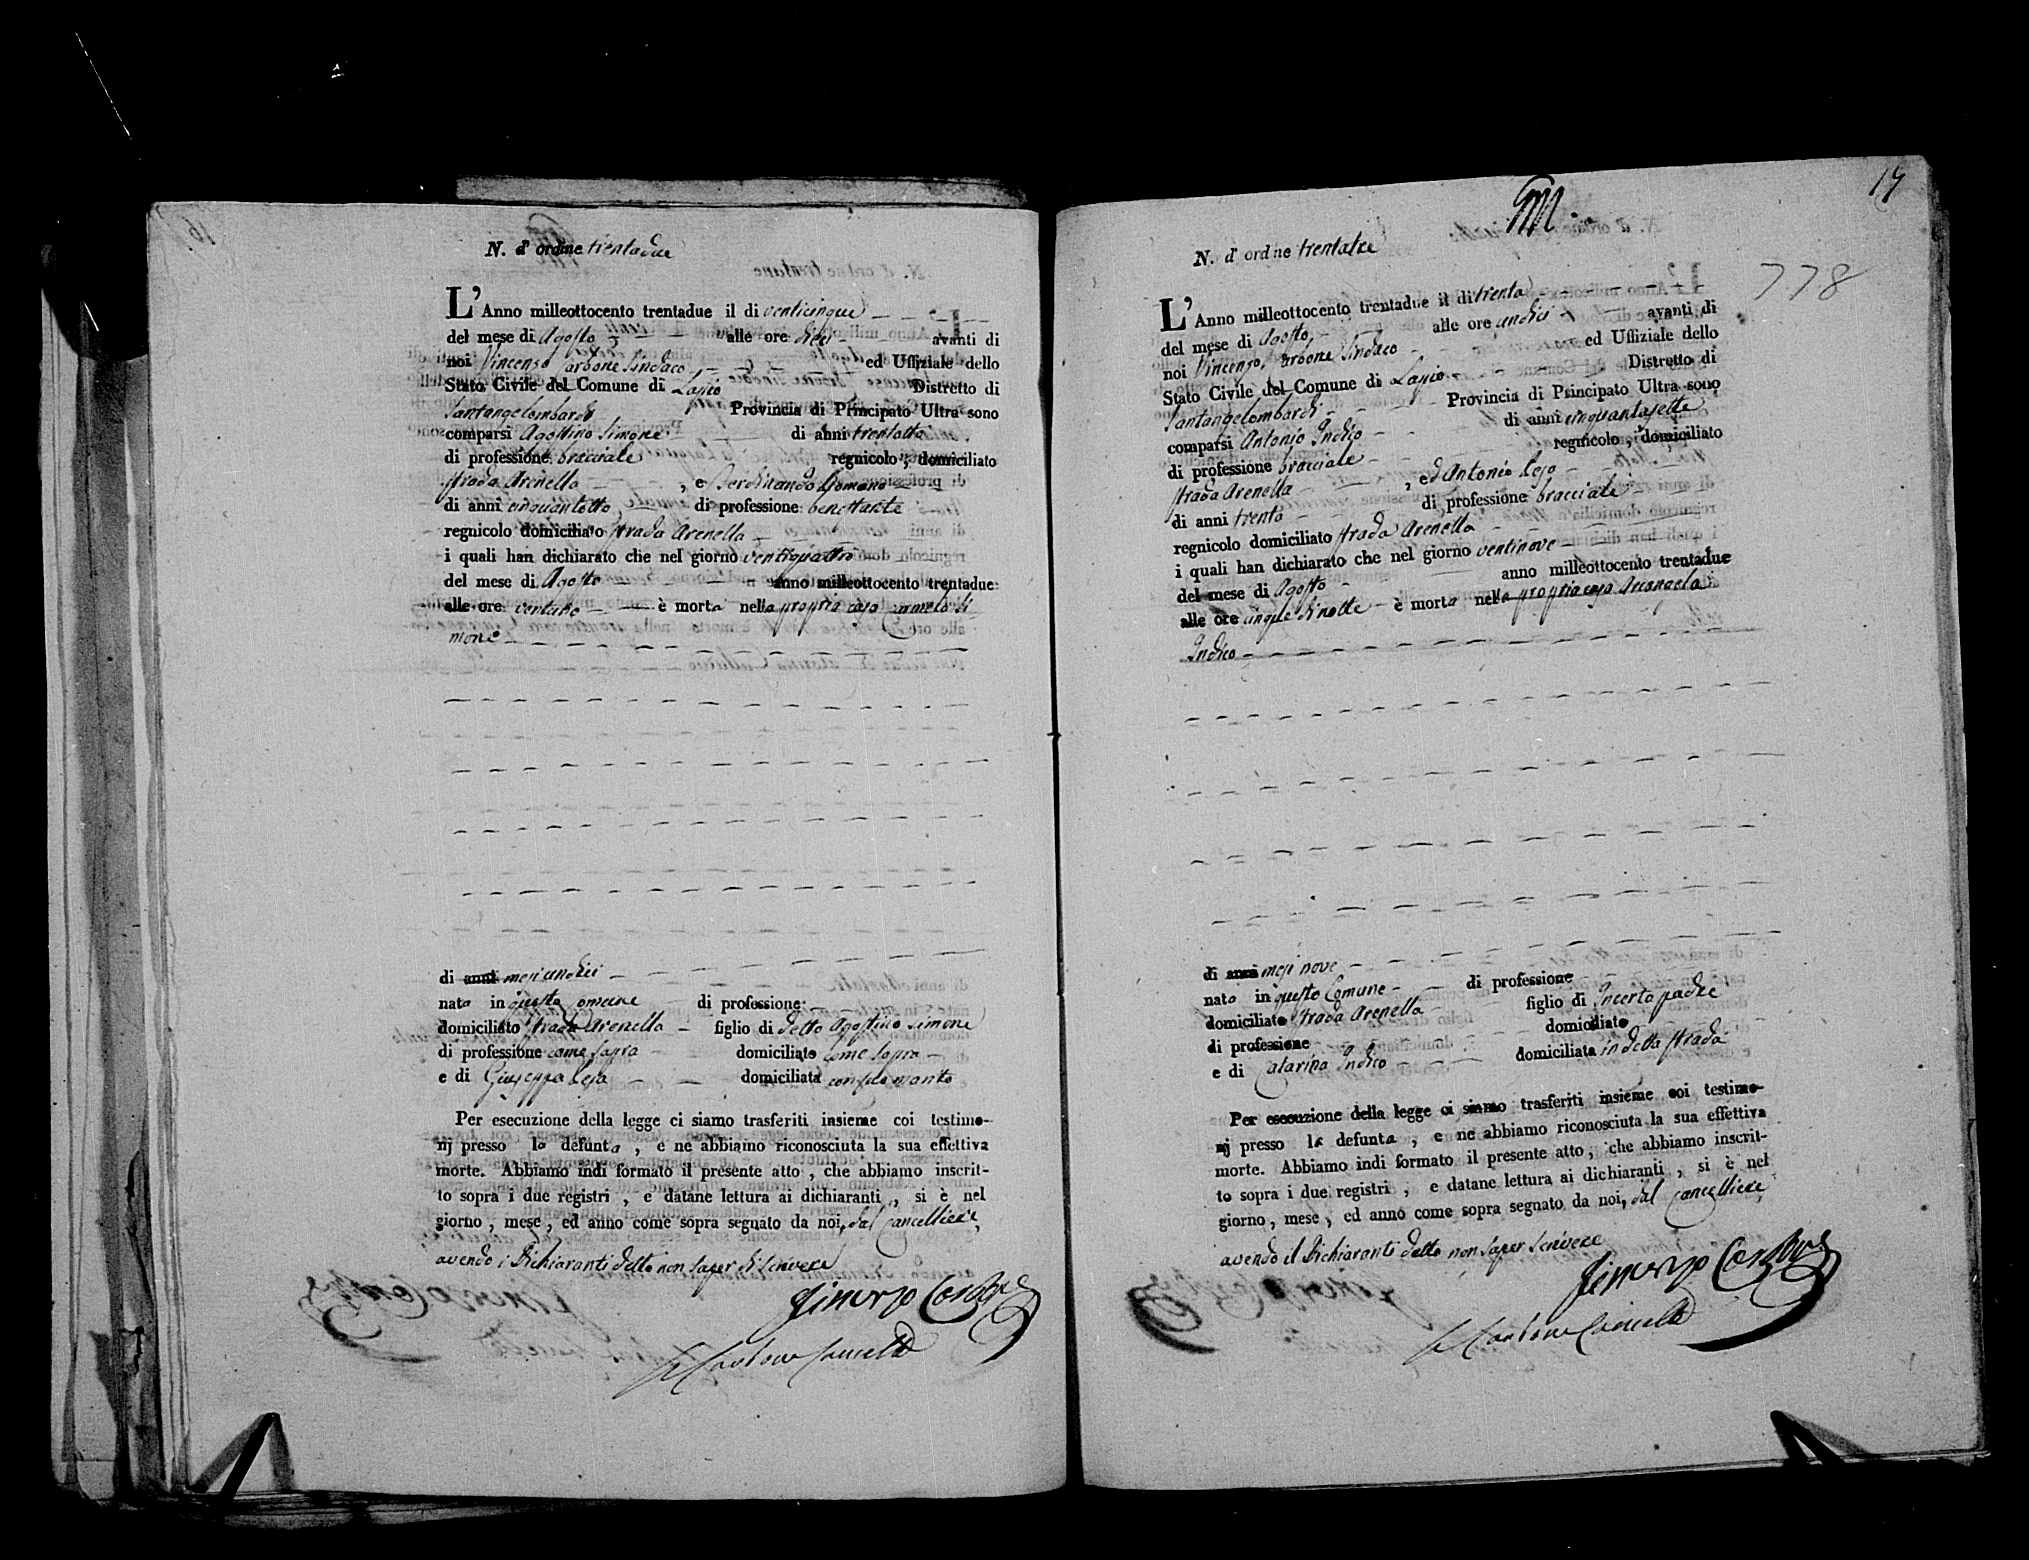 N. d' ordine trentadue
L' Anno milleottocento trentadue il di venticinque
del mese di Agosto alle ore dieci avanti di
noi Vincenzo Carbone Sindaco ed Uffiziale dello
Stato Civile del Comune di Lapio Distretto di
Santangelombardi Provincia di Principato Ultra sono
comparsi Agostino Simone di anni trentotto
di professione bracciale regnicolo, domiciliato
strada Arenella, e Ferdinando Romano
di anni cinquantotto, di professione benestante
regnicolo domiciliato strada Arenella
i quali han dichiarato che nel giorno ventiquattro
del mese di Agosto anno milleottocento trentadue
alle ore ventuno è morta nella propria casa Carmela Si
mone
di anni mesi undici
nata in questo Comune di professione
domiciliato strada Arenella figlio di detto Agostino Simone
di professione come sopra domiciliato come sopra
e di Giuseppa Lepa domiciliata con suo marito
Per esecuzione della legge ci siamo trasferiti insieme coi testimo-
nj presso la defunta, e ne abbiamo riconosciuta la sua effettiva
morte. Abbiamo indi formato il presente atto, che abbiamo inscrit-
to sopra i due registri, e datane lettura ai dichiaranti, si è nel
giorno, mese, ed anno come sopra segnato da noi, dal Cancelliere,
avendo i Dichiaranti detto non saper di scrivere
Vincenzo Carbone
17
778
N. d' ordine trentatre
L' Anno milleottocento trentadue il di trenta
del mese di Agosto alle ore undici avanti di
noi Vincenzo Carbone Sindaco ed Uffiziale dello
Stato Civile del Comune di Lapio Distretto di
Santangelombardi Provincia di Principato Ultra sono
comparsi Antonio Indico di anni cinquantasette
di professione bracciale regnicolo, domiciliato
strada Arenella, ed Antonio Lepo
di anni trenta di professione bracciale
regnicolo domiciliato strada Arenella
i quali han dichiarato che nel giorno ventinove
del mese di Agosto anno milleottocento trentadue
alle ore cinque di notte è morta nella propria casa Arcangela
Indico
di anni mesi nove
nata in questo Comune di professione
domiciliato strada Arenella figlio di Incerto padre
di professione domiciliato
e di Catarina Indico domiciliata in detta strada
Per esecuzione della legge ci siamo trasferiti insieme coi testimo-
nj presso la defunta, e ne abbiamo riconosciuta la sua effettiva
morte. Abbiamo indi formato il presente atto, che abbiamo inscrit-
to sopra i due registri, e datane lettura ai dichiaranti, si è nel
giorno, mese, ed anno come sopra segnato da noi, dal Cancelliere,
avendo il Dichiaranti detto non saper scrivere
Vincenzo Carbone